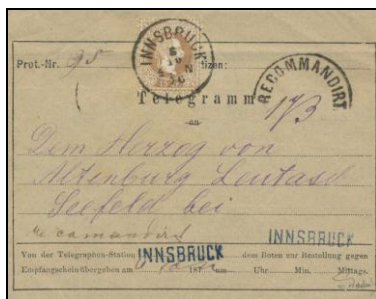 Prot.-Nr. 95
INNSBRUCK
RECOMMANDIRT
Telegramm
173
an
Dem Herzog von
Altenburg Leutasch
Seefeld bei
INNSBRUCK
Von der Telegraphen-Station INNSBRUCK dem Boten zur Bestellung gegen
Empfangschein übergeben am 187 um Uhr Min. Mittags.